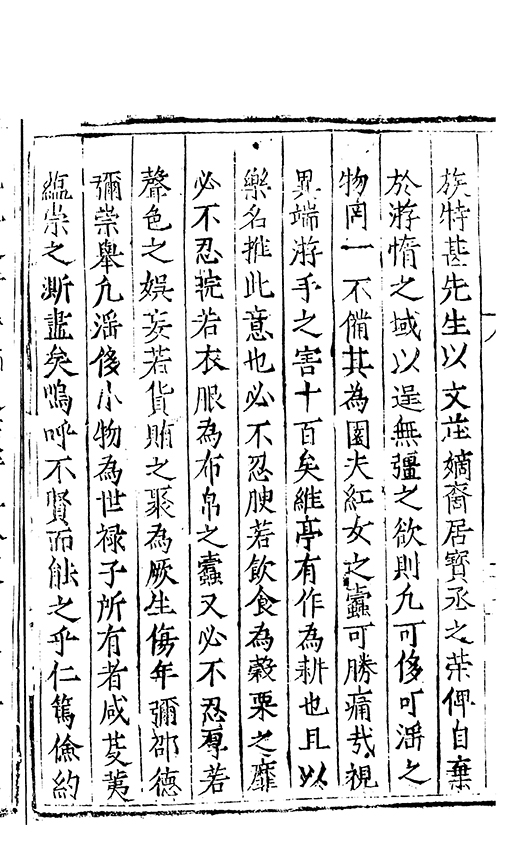 族特甚先生以文莊嫡裔居寳丞之榮俾自棄
於游惰之域以逞無疆之欲則凢可侈可滛之
物罔一不備其為園夫紅女之蠹可勝痛哉視
異端游手之害十百矣維亭有作為耕也且以
樂名推此意也必不忍腆若飲食為穀粟之靡
必不忍 若衣服為布帛之蠹又必不忍 若
聲色之娛 若貨賄之聚為厥生傷年彌邵德
彌崇舉凢滛侈小物為世禄子所有者咸芟荑
藴崇之澌盡矣嗚呼不賢而能之乎仁篤儉約